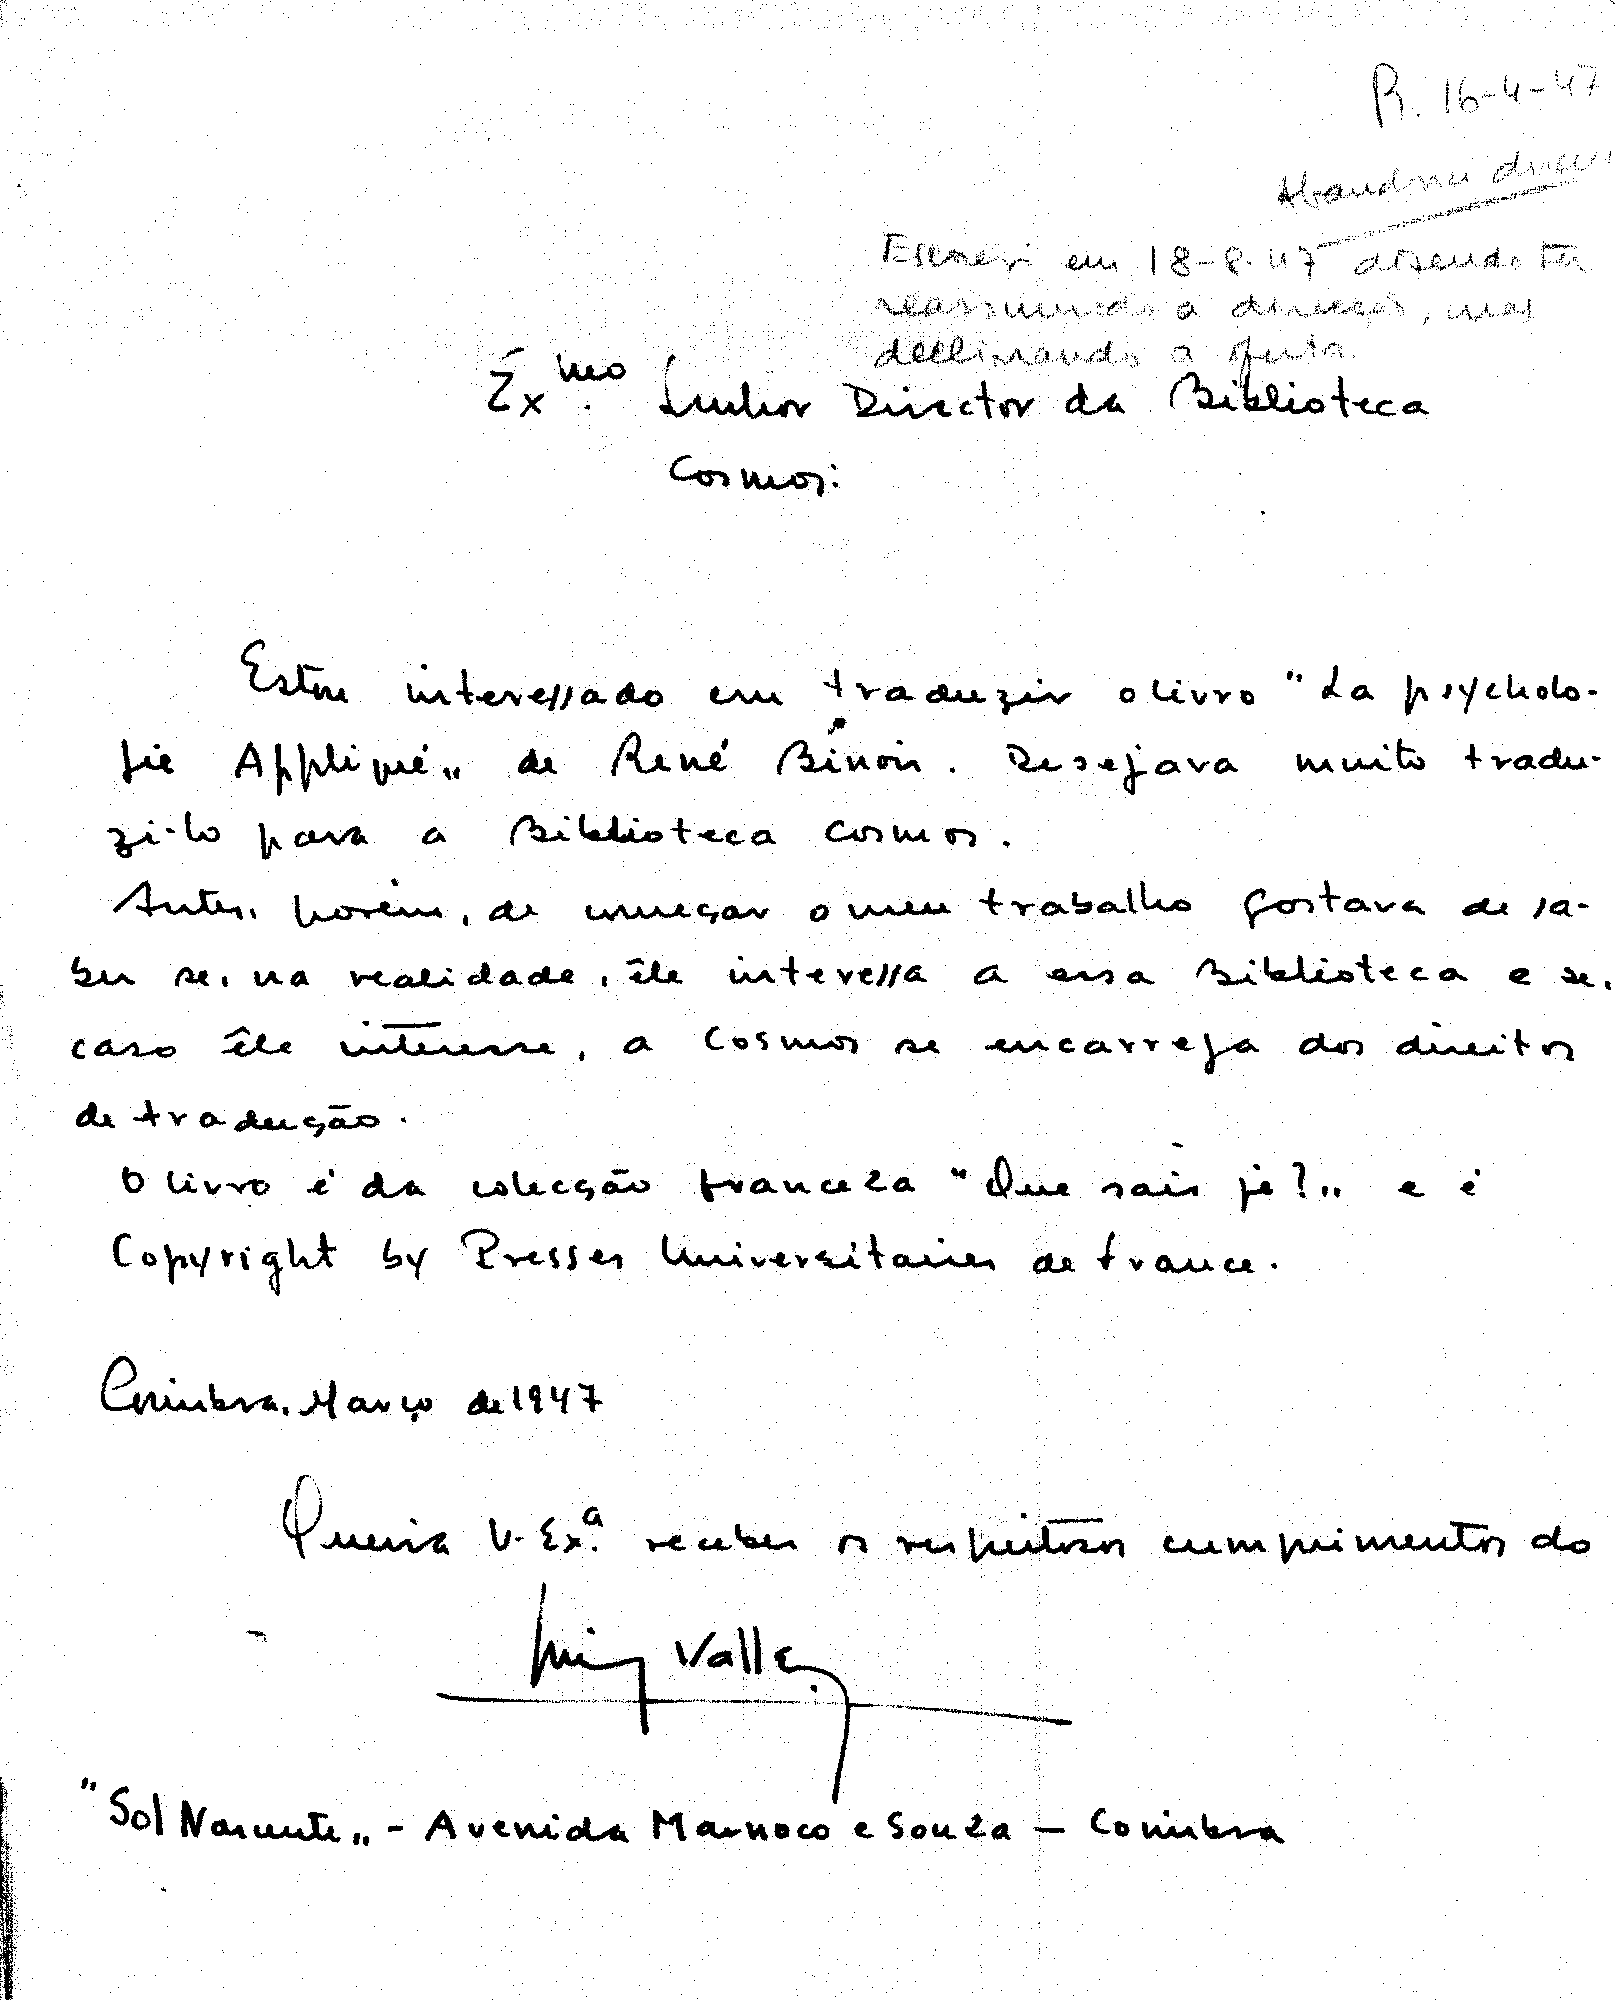 R. 16-4-47
Abandonei direc
Escrevi em 18-8-47 dizendo ter
reassumido a direcção, mas
declinando a oferta.
Exmo. Senhor Director da Biblioteca
Cosmos:
Estou interessado em traduzir o livro "La psycholo-
gie Appliqué„ de René Binois. Desejava muito tradu-
zi-lo para a Biblioteca Cosmos.
Antes, porém, de começar o meu trabalho gostava de sa-
ber se, na realidade, êle interessa a essa Biblioteca e se,
caso êle interesse, a Cosmos se encarrega dos direitos
de tradução.
O livro é da colecção franceza "Que sais je?„ e é
Copyright by Presses Universitaires de france.
Coimbra, Março de 1947
Queira V. Ex.ª receber os respeitosos cumprimentos do
Valle
"Sol Nascente„ - Avenida Marnoco e Souza - Coimbra